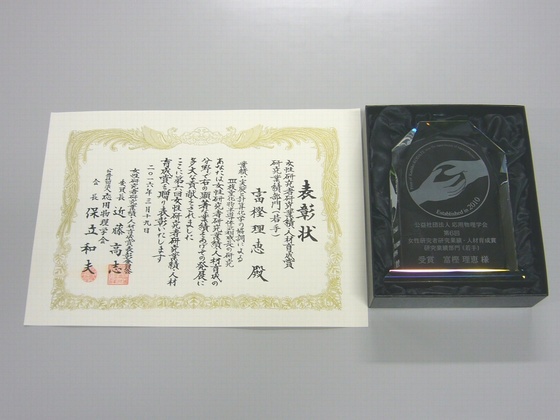 表彰状
女性研究者研究業績人材育成賞
研究業績部門（若手）
富樫理恵 殿
業績：実験と計算化学の協調による
III族窒化物半導体気相成長の研究
あなたは女性研究者研究業績人材育成の
分野で右の顕著な業績をあげその発展に
多大な貢献をされました
ここに第六回女性研究者研究業績人材
育成賞を贈り表彰いたします
二〇一六年三月十九日
女性研究者研究業績人材育成賞表彰委員会
委員長 近藤高志
公益社団法人応用物理学会
会長 保立和夫
Established in 2010
公益社団法人 応用物理学会
第6回
女性研究者研究業績・人材育成賞
研究業績部門（若手）
受賞 富樫 理恵 様